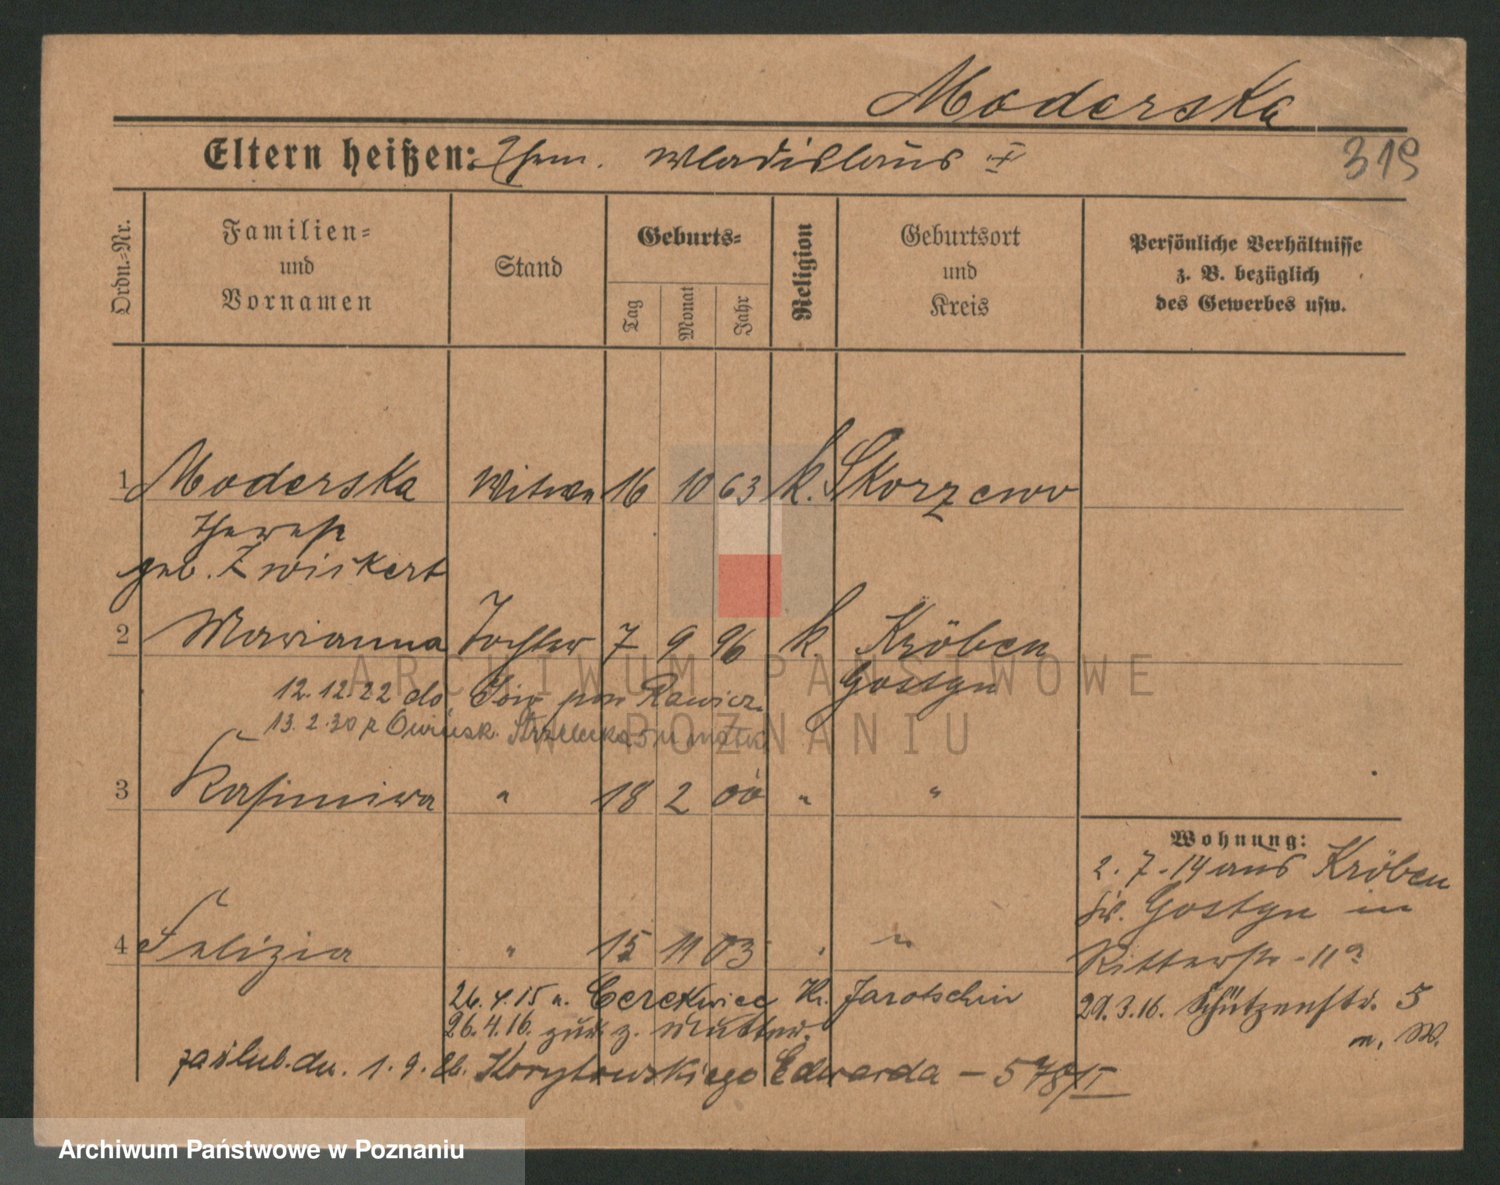 Moderska
Eltern heißen: Ehem. Wladislaus +
319
Ordn.-Nr.
Familien- und Vornamen
Stand
Geburts-
Tag
Monat
Jahr
Religion
Geburtsort und Kreis
Persönliche Verhältnisse
z. B. bezüglich
des Gewerbes usw.
1 Moderska Witwe 16 10 63 k. Skorzewo
Therese
geb. Zwiskert
2 Marianna Tochter 7 9 96 k. Kröben
Gostyn
12.12.22 do pow Rawicz
13.2.30 z Owińsk. Strzelecka 5 u matki
3 Kasimira " 18 2 00 " "
Wohnung:
2.7.14 aus Kröben
Kr. Gostyn in
Ritterstr. 11a
29.3.16. Schützenstr. 5
m. W.
4 Felizia " 15 11 03 " "
26.4.15 n. Cerekwice Kr. Jarotschin
26.4.16. zur. z. Mutter.
zaślub. dn. 1.9.26. Korytowskiego Edwarda – 578/I
ARCHIWUM PAŃSTWOWE
W POZNANIU
Archiwum Państwowe w Poznaniu